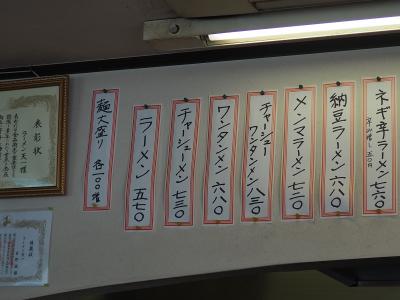 ネギ辛ラーメン 七六〇
納豆ラーメン 六八〇
メンマラーメン 七二〇
チャーシュー
ワンタンメン 八三〇
ワンタンメン 六八〇
チャーシューメン 七三〇
ラーメン 五七〇
麺大盛り 各一〇〇増
表彰状
ラーメン天一様